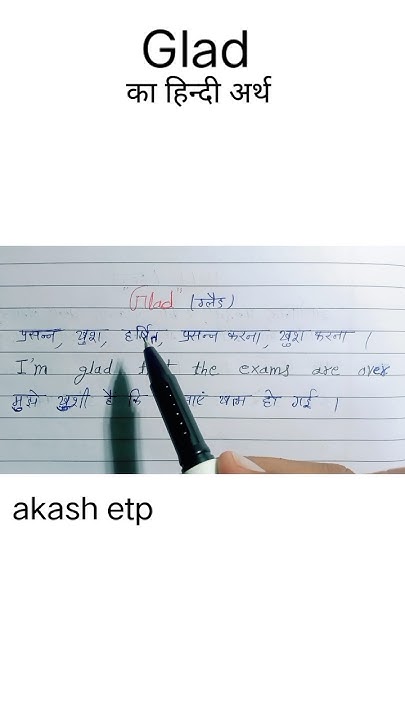 Glad
का हिन्दी अर्थ
"Glad" (ग्लैड)
प्रसन्न, खुश, हर्षित, प्रसन्न करना, खुश करना ।
I'm glad the exams are over
मुझे खुशी है कि खत्म हो गई ।
akash etp